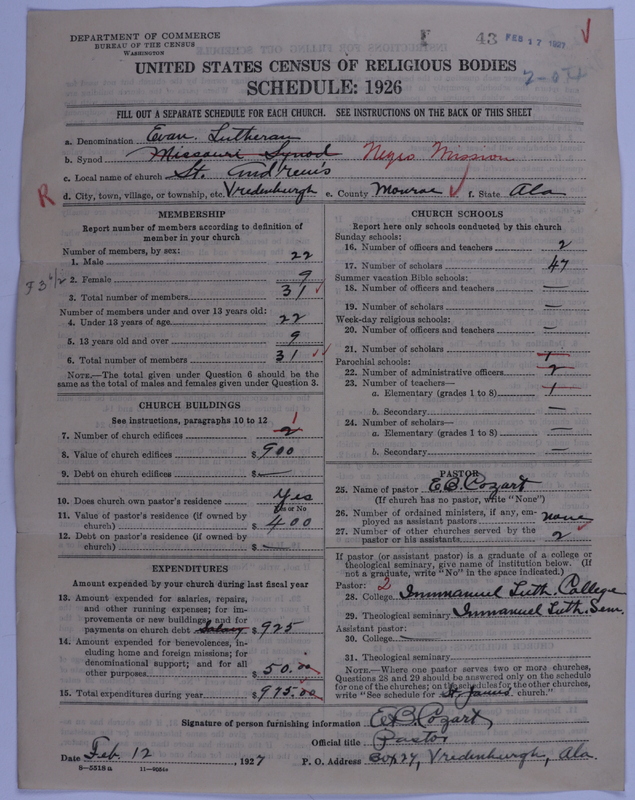 DEPARTMENT OF COMMERCE
BUREAU OF THE CENSUS
WASHINGTON
F 43 FEB 17 1927
UNITED STATES CENSUS OF RELIGIOUS BODIES
SCHEDULE: 1926
FILL OUT A SEPARATE SCHEDULE FOR EACH CHURCH. SEE INSTRUCTIONS ON THE BACK OF THIS SHEET
a. Denomination Evan. Lutheran
b. Synod Missouri Synod Negro Mission
c. Local name of church St. Andrews
R d. City, town, village, or township, etc. Vredenburgh e. County Monroe f. State Ala
MEMBERSHIP
Report number of members according to definition of
member in your church
Number of members, by sex:
1. Male 22
2. Female 9
3. Total number of members 31
Number of members under and over 13 years old:
4. Under 13 years of age 22
5. 13 years old and over 9
6. Total number of members 31
NOTE.—The total given under Question 6 should be the
same as the total of males and females given under Question 3.
CHURCH BUILDINGS
See instructions, paragraphs 10 to 12
7. Number of church edifices 2 1
8. Value of church edifices $900
9. Debt on church edifices $—
10. Does church own pastor's residence Yes
Yes or No
11. Value of pastor's residence (if owned by
church) $400
12. Debt on pastor's residence (if owned by
church) $—
EXPENDITURES
Amount expended by your church during last fiscal year
13. Amount expended for salaries, repairs,
and other running expenses; for im-
provements or new buildings; and for
payments on church debt Salary $925
14. Amount expended for benevolences, in-
cluding home and foreign missions; for
denominational support; and for all
other purposes $50.00
15. Total expenditures during year $975.00
CHURCH SCHOOLS
Report here only schools conducted by this church
Sunday schools:
16. Number of officers and teachers 2
17. Number of scholars 47
Summer vacation Bible schools:
18. Number of officers and teachers —
19. Number of scholars —
Week-day religious schools:
20. Number of officers and teachers —
21. Number of scholars 1
Parochial schools:
22. Number of administrative officers 2
23. Number of teachers—
a. Elementary (grades 1 to 8) 1
b. Secondary —
24. Number of scholars—
a. Elementary (grades 1 to 8) —
b. Secondary —
PASTOR
25. Name of pastor E.B. Cozart
(If church has no pastor, write "None")
26. Number of ordained ministers, if any, em-
ployed as assistant pastors none
27. Number of other churches served by the
pastor or his assistants 2
If pastor (or assistant pastor) is a graduate of a college or
theological seminary, give name of institution below. (If
not a graduate, write "No" in the space indicated.)
Pastor: 2
28. College Immanuel Luth. College
29. Theological seminary Immanuel Luth. Sem.
Assistant pastor:
30. College —
31. Theological seminary
NOTE.—Where one pastor serves two or more churches,
Questions 28 and 29 should be answered only on the schedule
for one of the churches; on the schedules for the other churches,
write "See schedule for St. James church."
Signature of person furnishing information E.B. Cozart
Official title Pastor
Date Feb. 12, 1927 P. O. Address Box 27, Vredenburgh, Ala.
8—5518a 11—9664